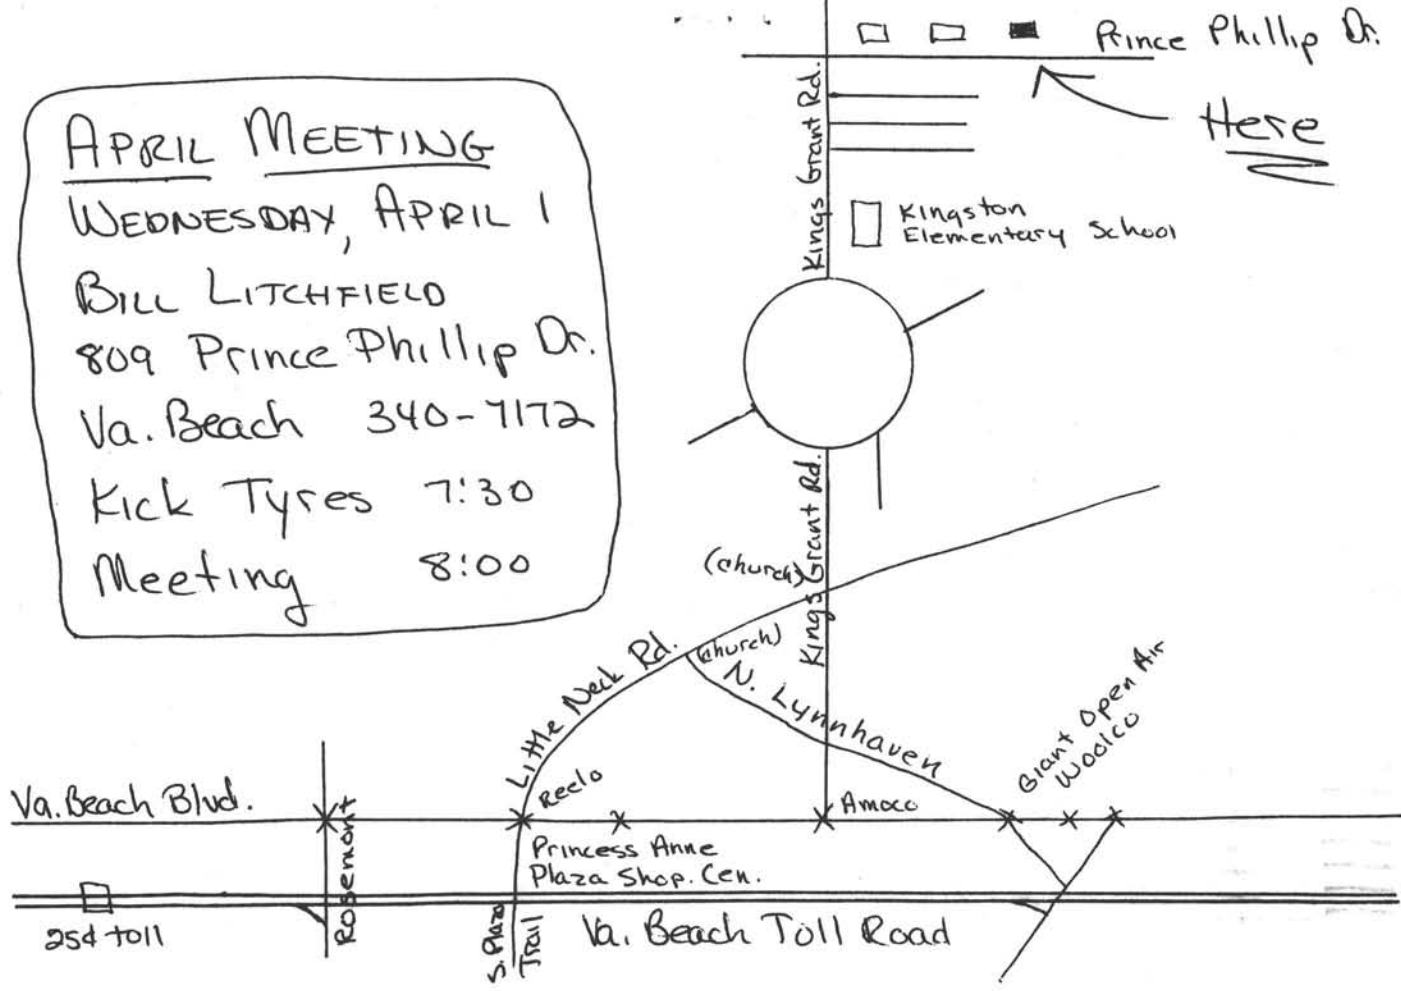 Prince Phillip Dr.
Here
APRIL MEETING
WEDNESDAY, APRIL 1
BILL LITCHFIELD
809 Prince Phillip Dr.
Va. Beach 340-7172
Kick Tyres 7:30
Meeting 8:00
Kings Grant Rd.
Kingston
Elementary School
Kings Grant Rd.
(church)
(church)
Little Neck Rd.
N. Lynnhaven
Giant Open Air
Woolco
Va. Beach Blvd.
Rosemont
Reelo
Amoco
Princess Anne
Plaza Shop. Cen.
25¢ toll
S. Plaza
Trail
Va. Beach Toll Road